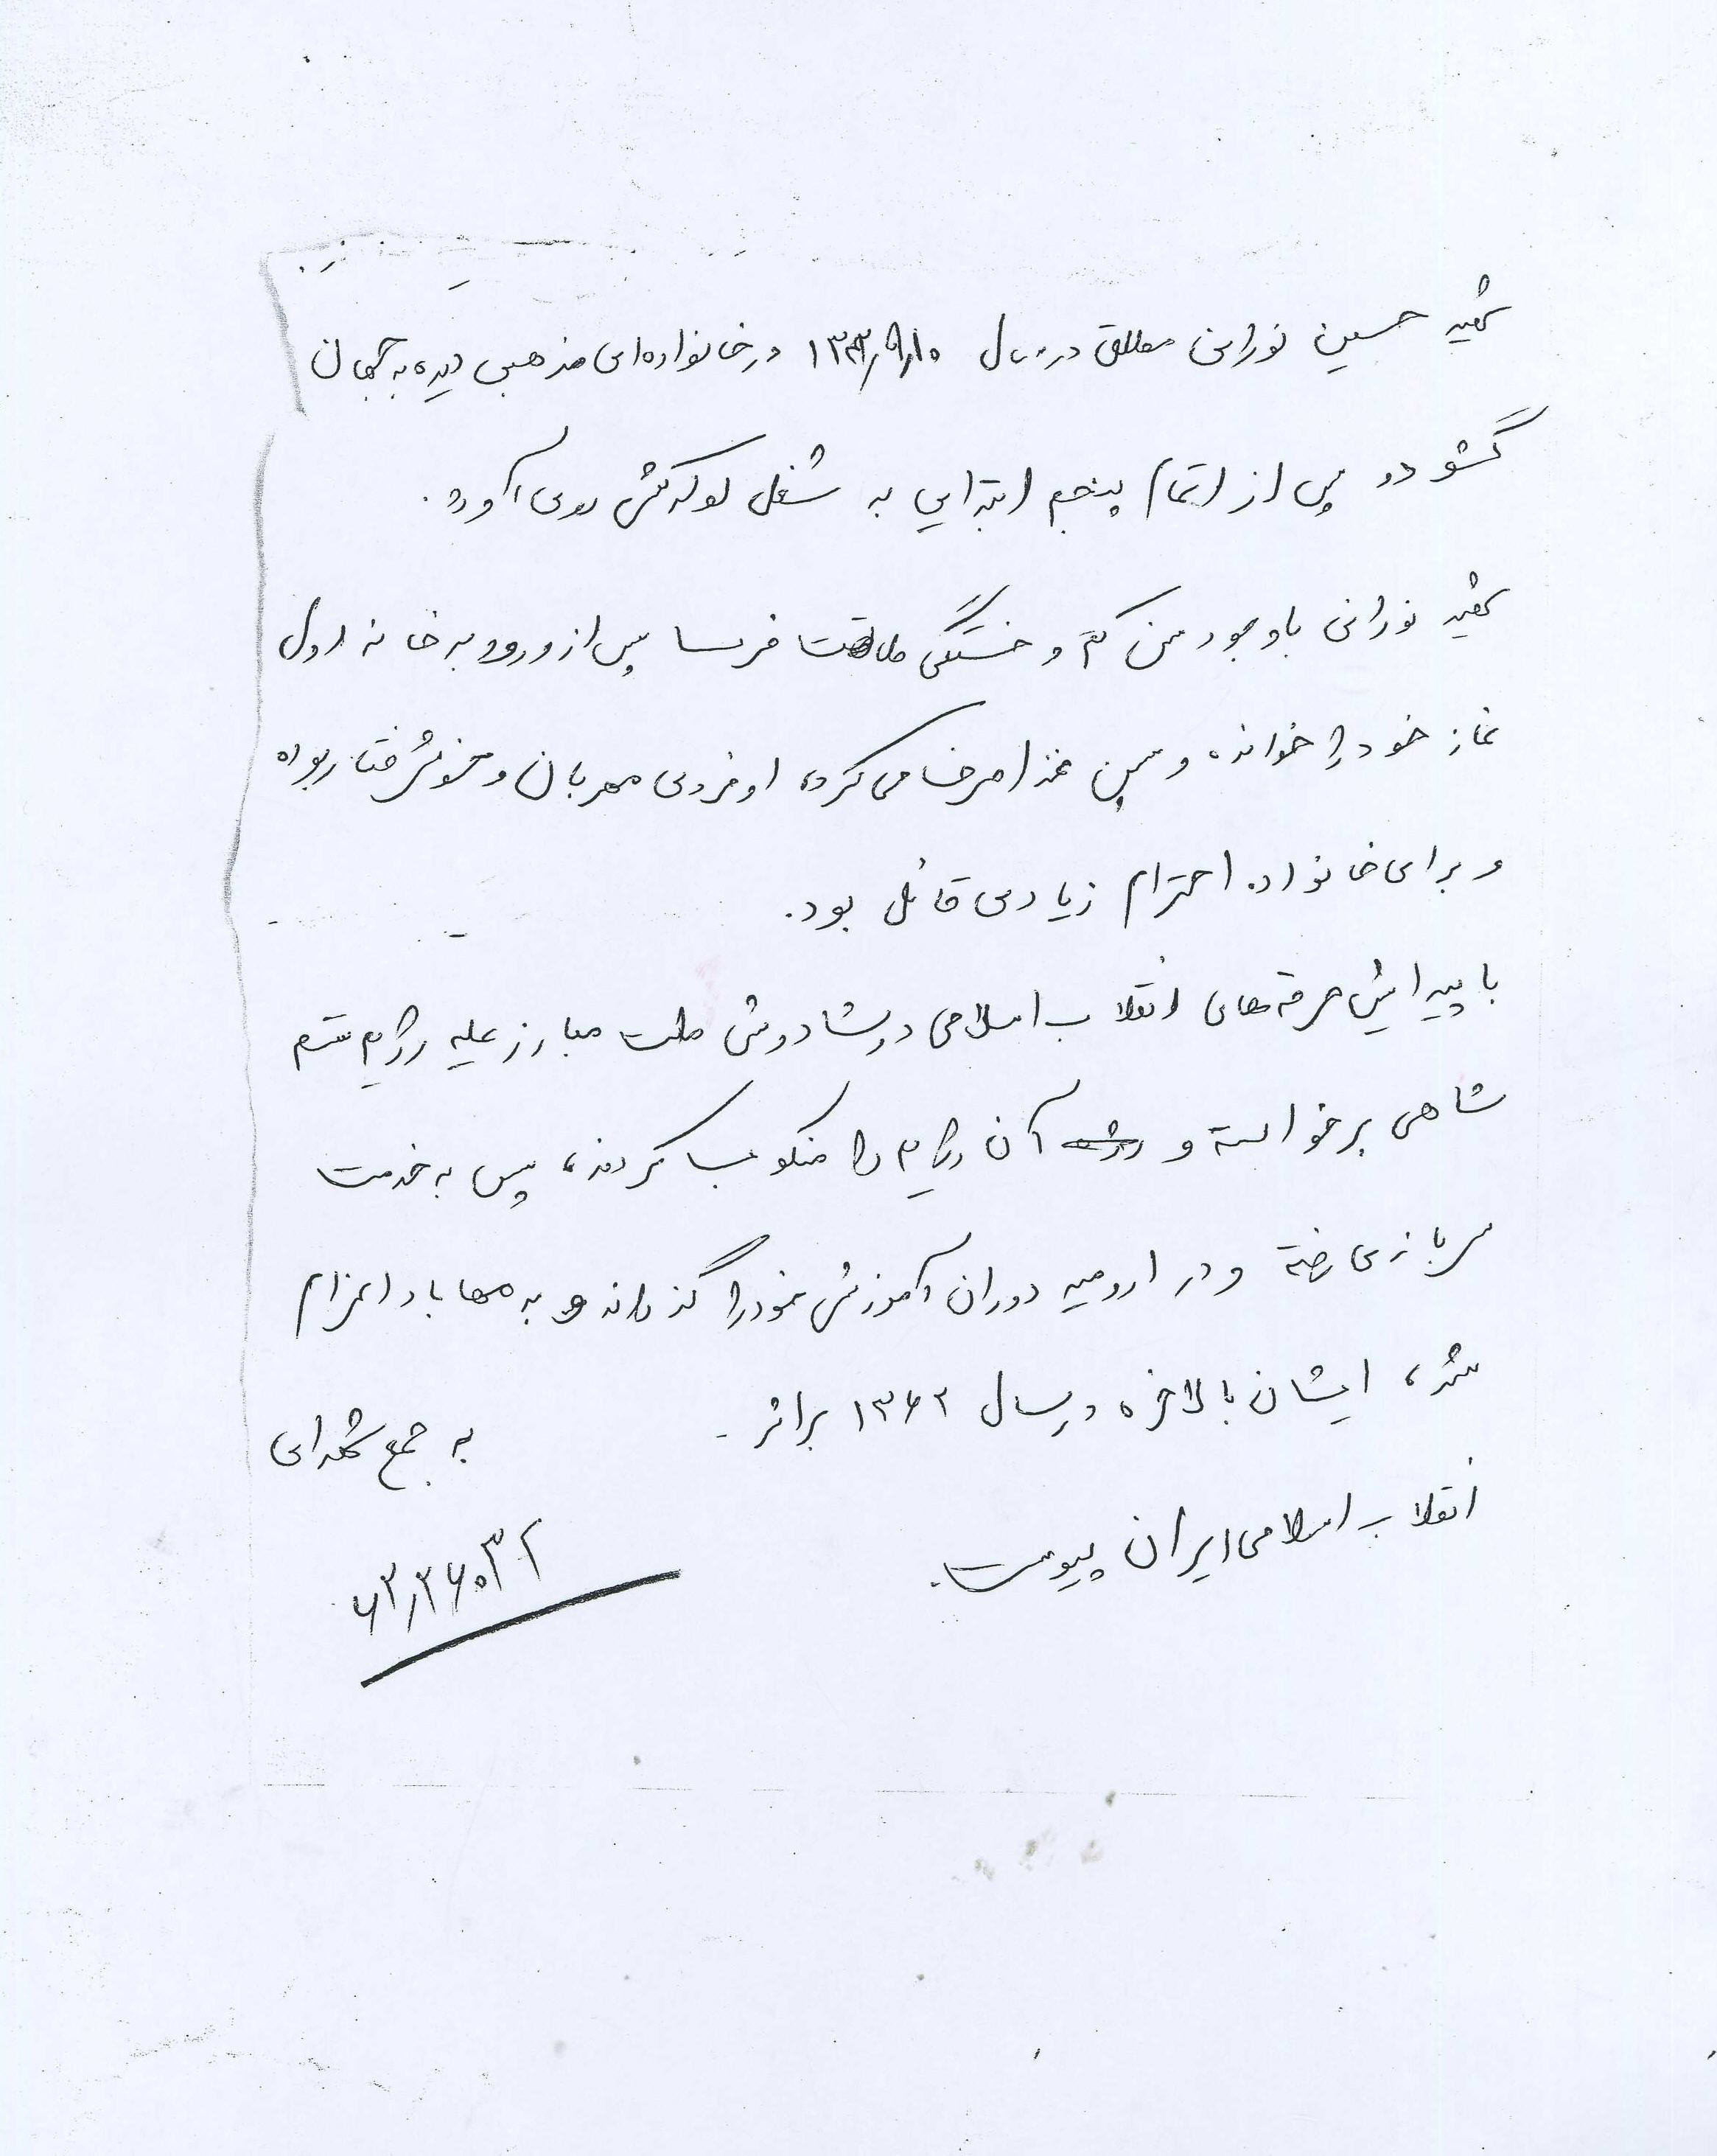 شهید حسین نورانی مطلق در سال درخانواده‌ای مذهبی دیده به جهان
گشود و پس از اتمام پنجم ابتدایی به شغل لوله‌کشی روی آورد.
شهید نورانی باوجود سن کم و خستگی طاقت فرسا پس از ورود به خانه اول
نماز خود را خوانده و سپس غذا صرف می‌کرد، او فردی مهربان و خوش‌رفتار بوده
و برای خانواده احترام زیادی قائل بود.
با پیدایش جرقه‌های انقلاب اسلامی دوشادوش ملت مبارز علیه رژیم ستم
شاهی برخواسته و آن رژیم را منکوب کردند، پس به خدمت
سربازی رفته و در ارومیه دوران آموزش خود را گذرانده و به مهاباد اعزام
شد، ایشان بالاخره در سال ۱۳۶۲ براثر - به جمع شهدای
انقلاب اسلامی ایران پیوست.